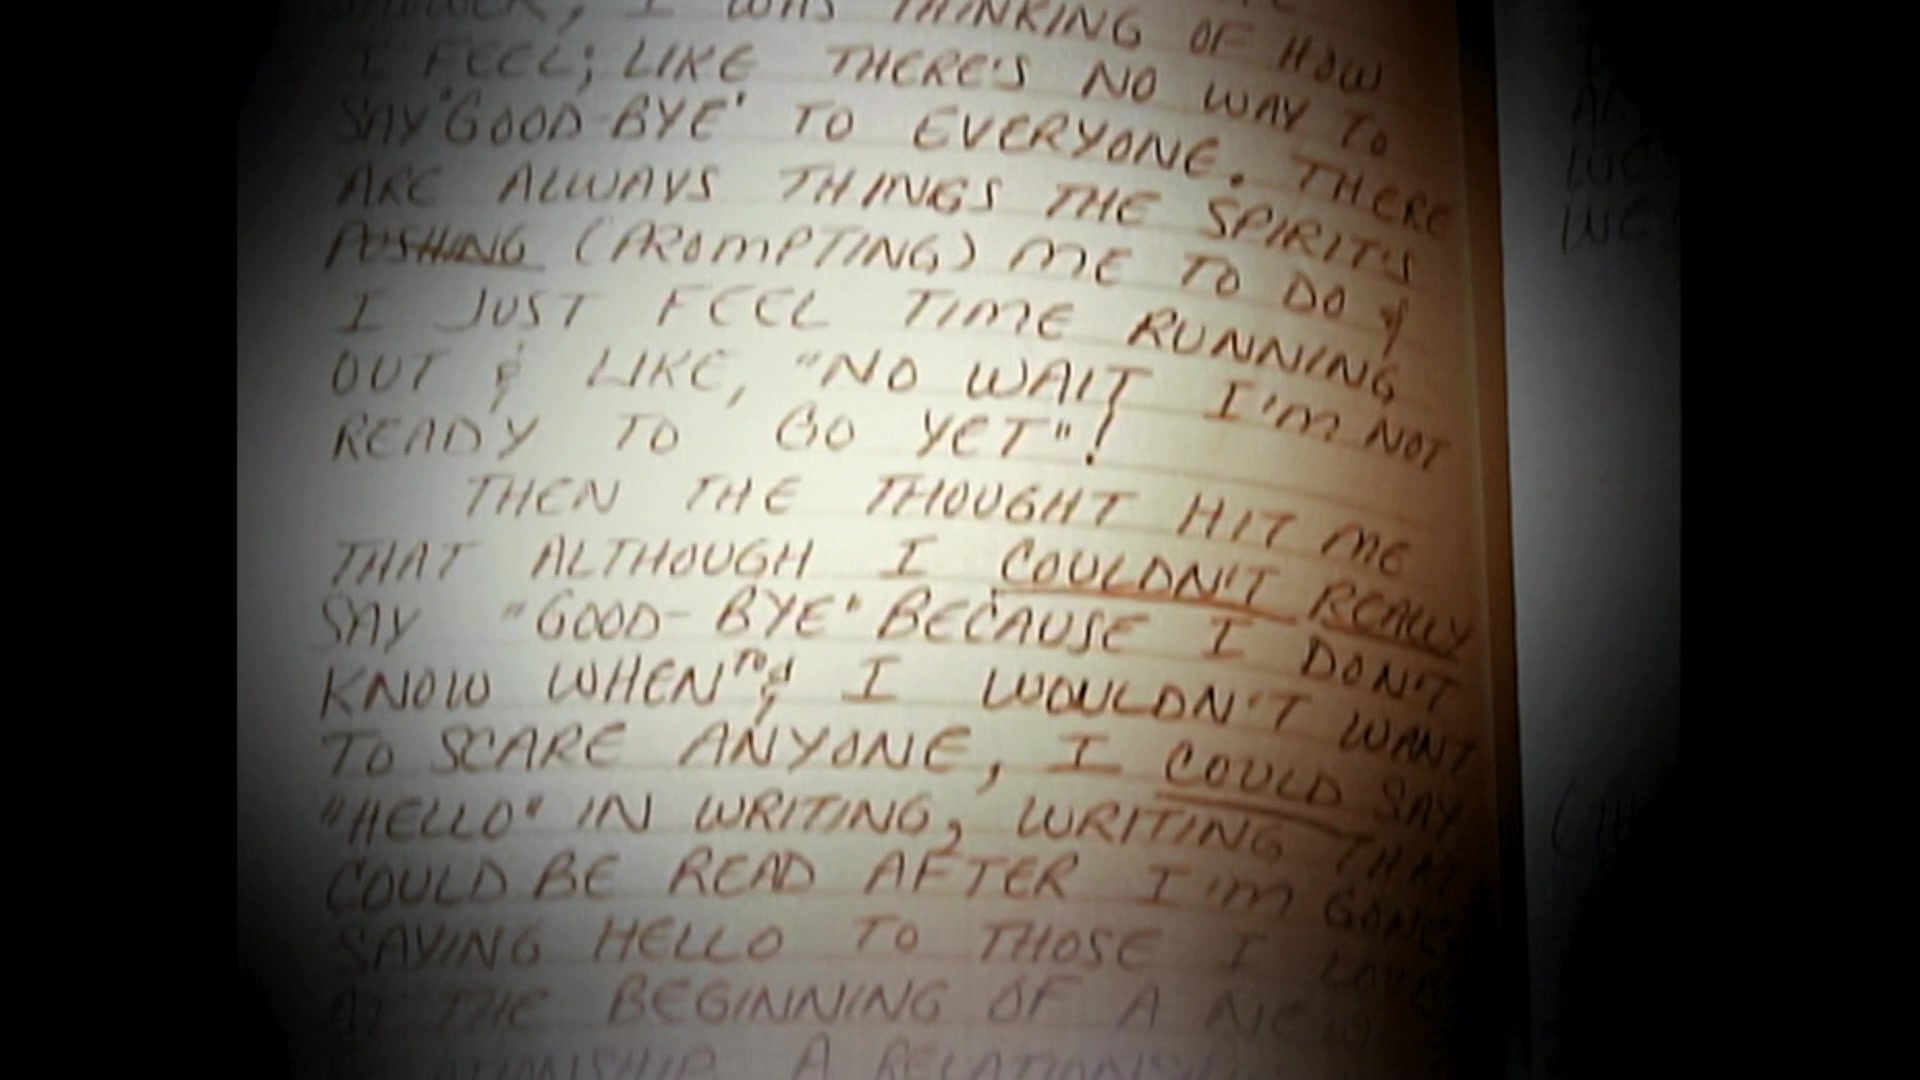 I WAS THINKING OF HOW
I FEEL; LIKE THERE'S NO WAY TO
SAY "GOOD-BYE" TO EVERYONE. THERE
ARE ALWAYS THINGS THE SPIRIT'S
PUSHING (PROMPTING) ME TO DO &
I JUST FEEL TIME RUNNING
OUT & LIKE, "NO WAIT I'M NOT
READY TO GO YET"!
THEN THE THOUGHT HIT ME
THAT ALTHOUGH I COULDN'T REALLY
SAY "GOOD-BYE" BECAUSE I DON'T
KNOW WHEN TO & I WOULDN'T WANT
TO SCARE ANYONE, I COULD SAY
"HELLO" IN WRITING, WRITING THAT
COULD BE READ AFTER I'M GONE
SAYING HELLO TO THOSE I LOVE
AT THE BEGINNING OF A NEW
RELATIONSHIP A
WE
WE